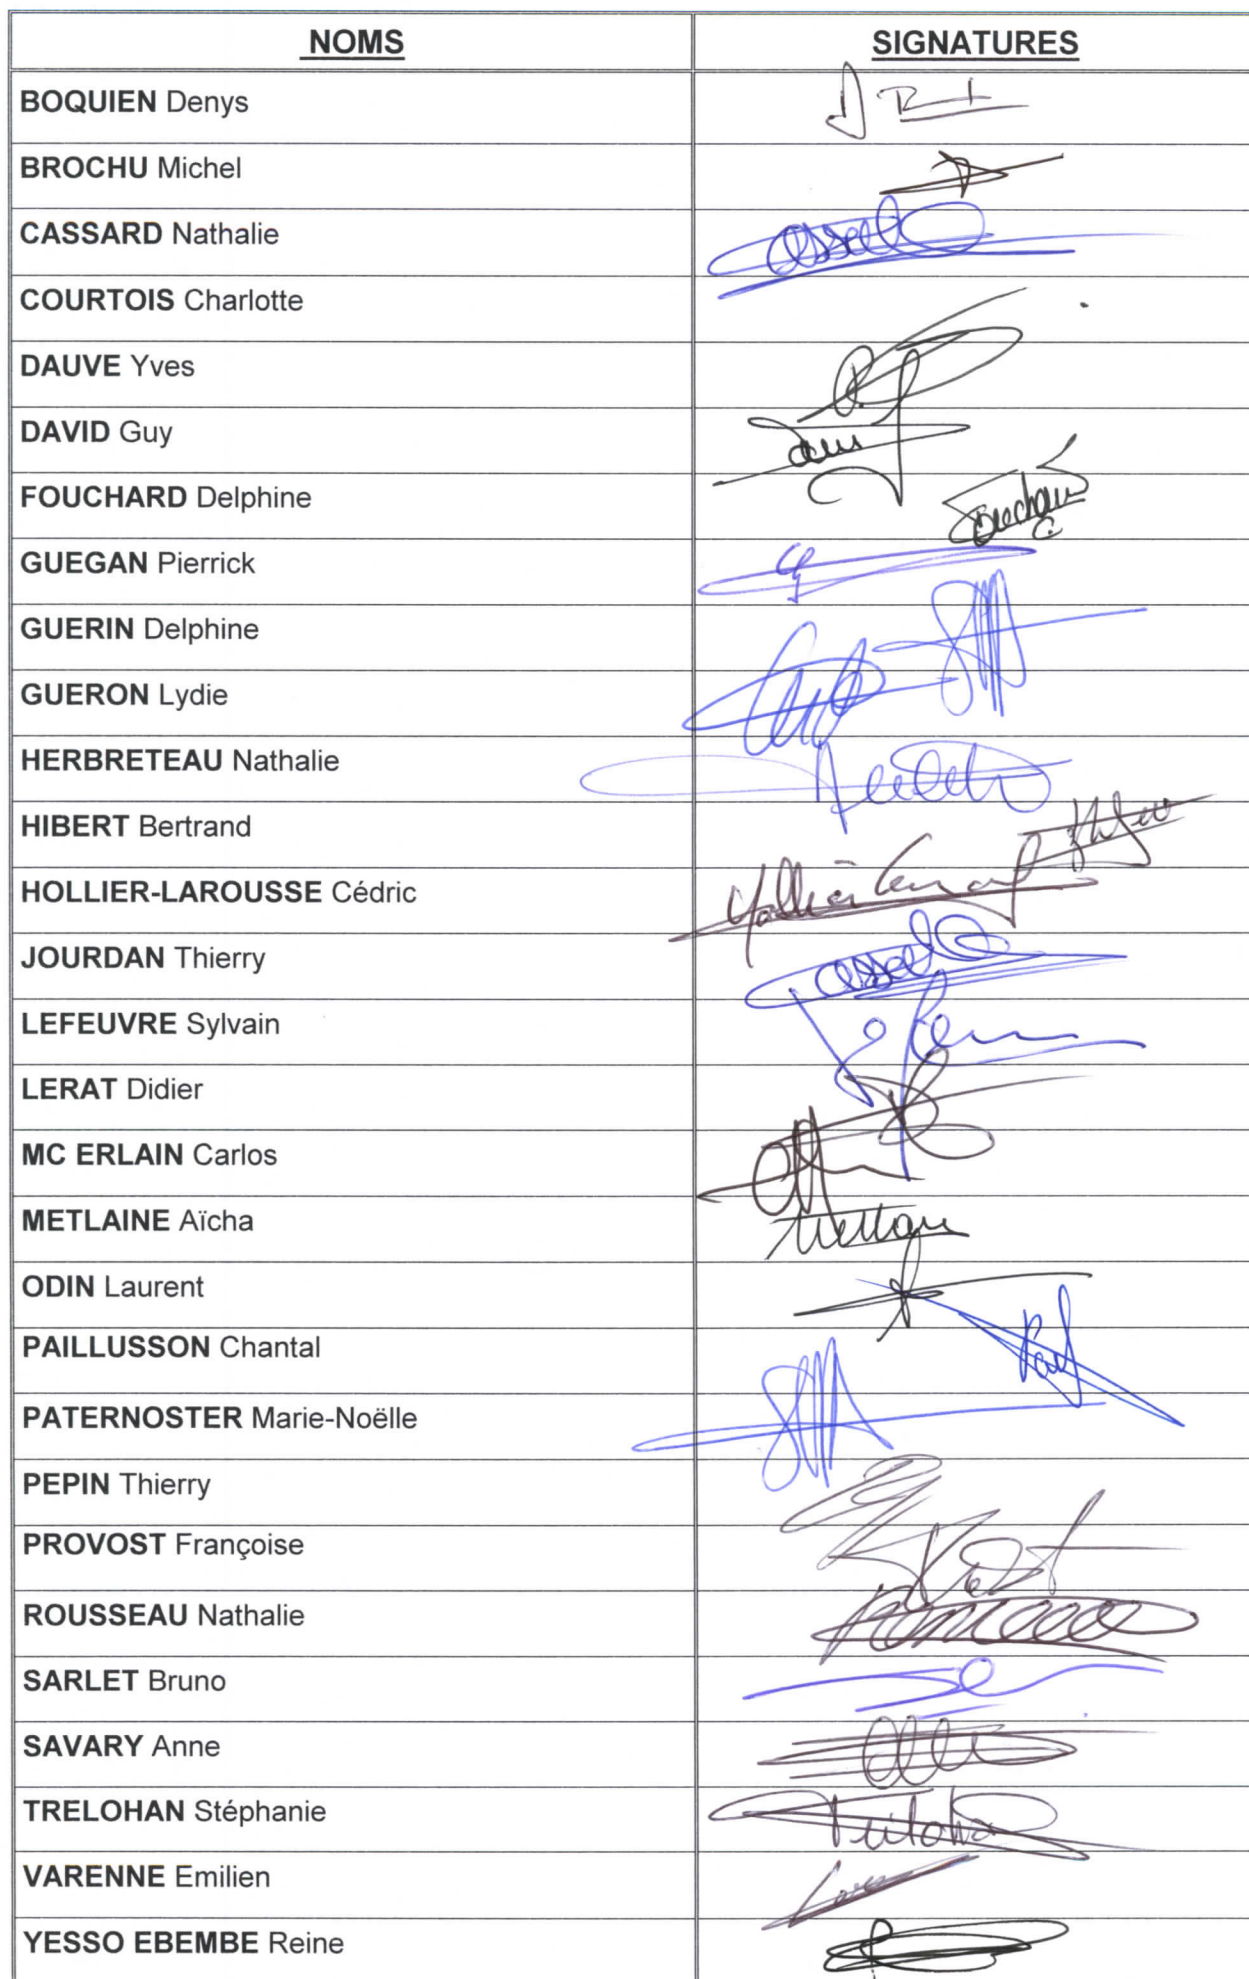 NOMS SIGNATURES
BOQUIEN Denys
BROCHU Michel
CASSARD Nathalie
COURTOIS Charlotte
DAUVE Yves
DAVID Guy
FOUCHARD Delphine
GUEGAN Pierrick
GUERIN Delphine
GUERON Lydie
HERBRETEAU Nathalie
HIBERT Bertrand
HOLLIER-LAROUSSE Cédric
JOURDAN Thierry
LEFEUVRE Sylvain
LERAT Didier
MC ERLAIN Carlos
METLAINE Aïcha
ODIN Laurent
PAILLUSSON Chantal
PATERNOSTER Marie-Noëlle
PEPIN Thierry
PROVOST Françoise
ROUSSEAU Nathalie
SARLET Bruno
SAVARY Anne
TRELOHAN Stéphanie
VARENNE Emilien
YESSO EBEMBE Reine